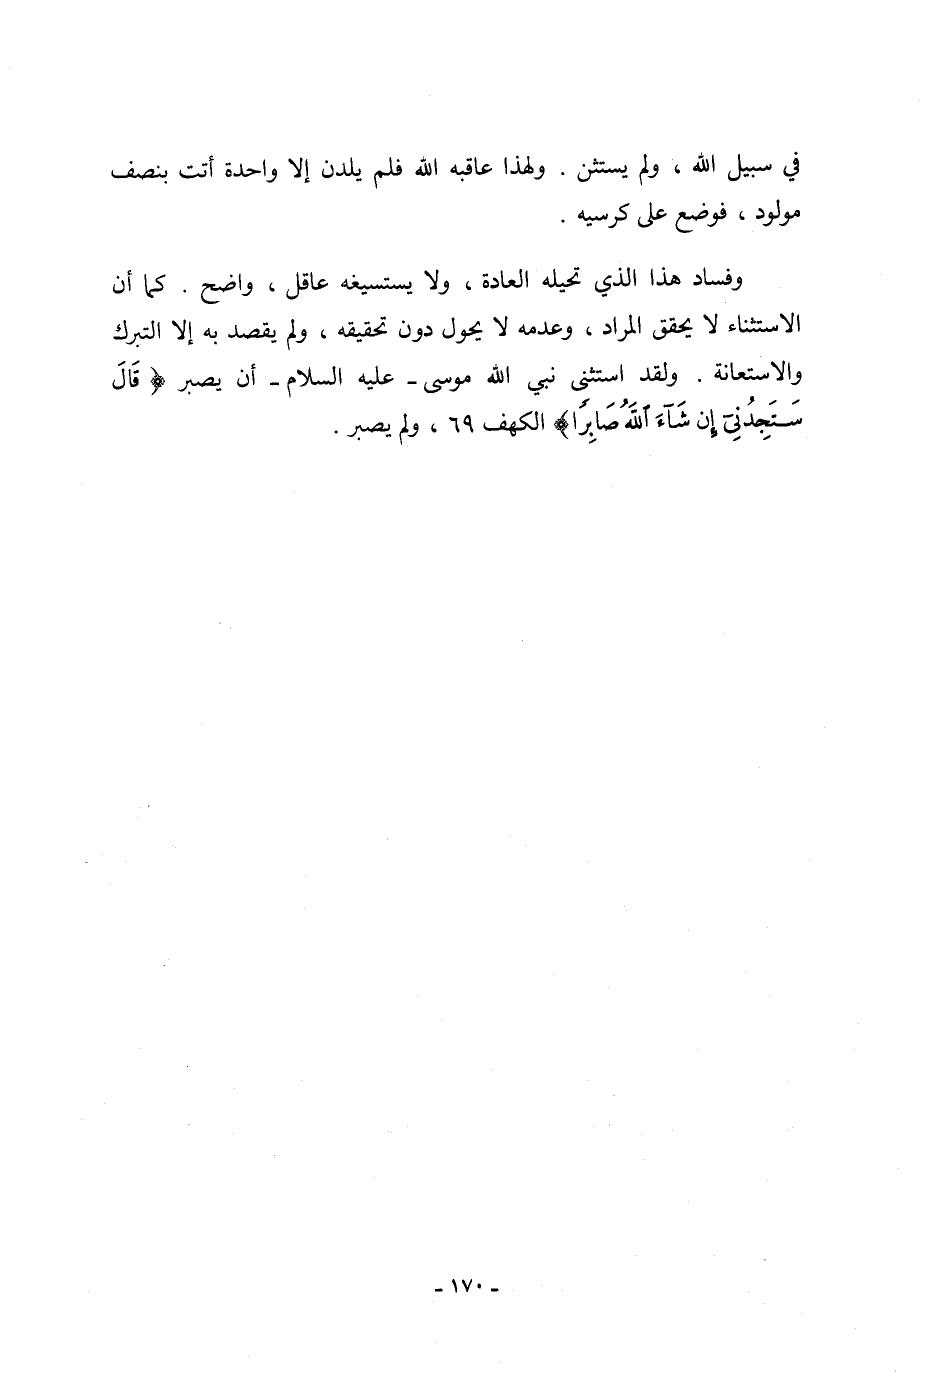 في سبيل الله ، ولم يستثن . ولهذا عاقبه الله فلم يلدن إلا واحدة أتت بنصف
مولود ، فوضع على كرسيه .
وفساد هذا الذي تحيله العادة ، ولا يستسيغه عاقل ، واضح . كما أن
الاستثناء لا يحقق المراد ، وعدمه لا يحول دون تحقيقه ، ولم يقصد به إلا التبرك
والاستعانة . ولقد استثنى نبي الله موسى - عليه السلام - أن يصبر ﴿ قَالَ
سَتَجِدُنِيٓ إِن شَآءَ ٱللَّهُ صَابِرًا﴾ الكهف ٦٩ ، ولم يصبر .
- ١٧٠ -